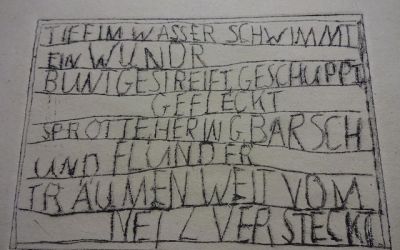 TIEF IM WASSER SCHWIMMT
EIN WUNDR
BUNTGESTREIFT, GESCHUPPT
GEFLECKT
SPROTTE, HERING BARSCH
UND FLUNDER
TRÄUMEN WEIT VOM
NETZ VERSTECKT